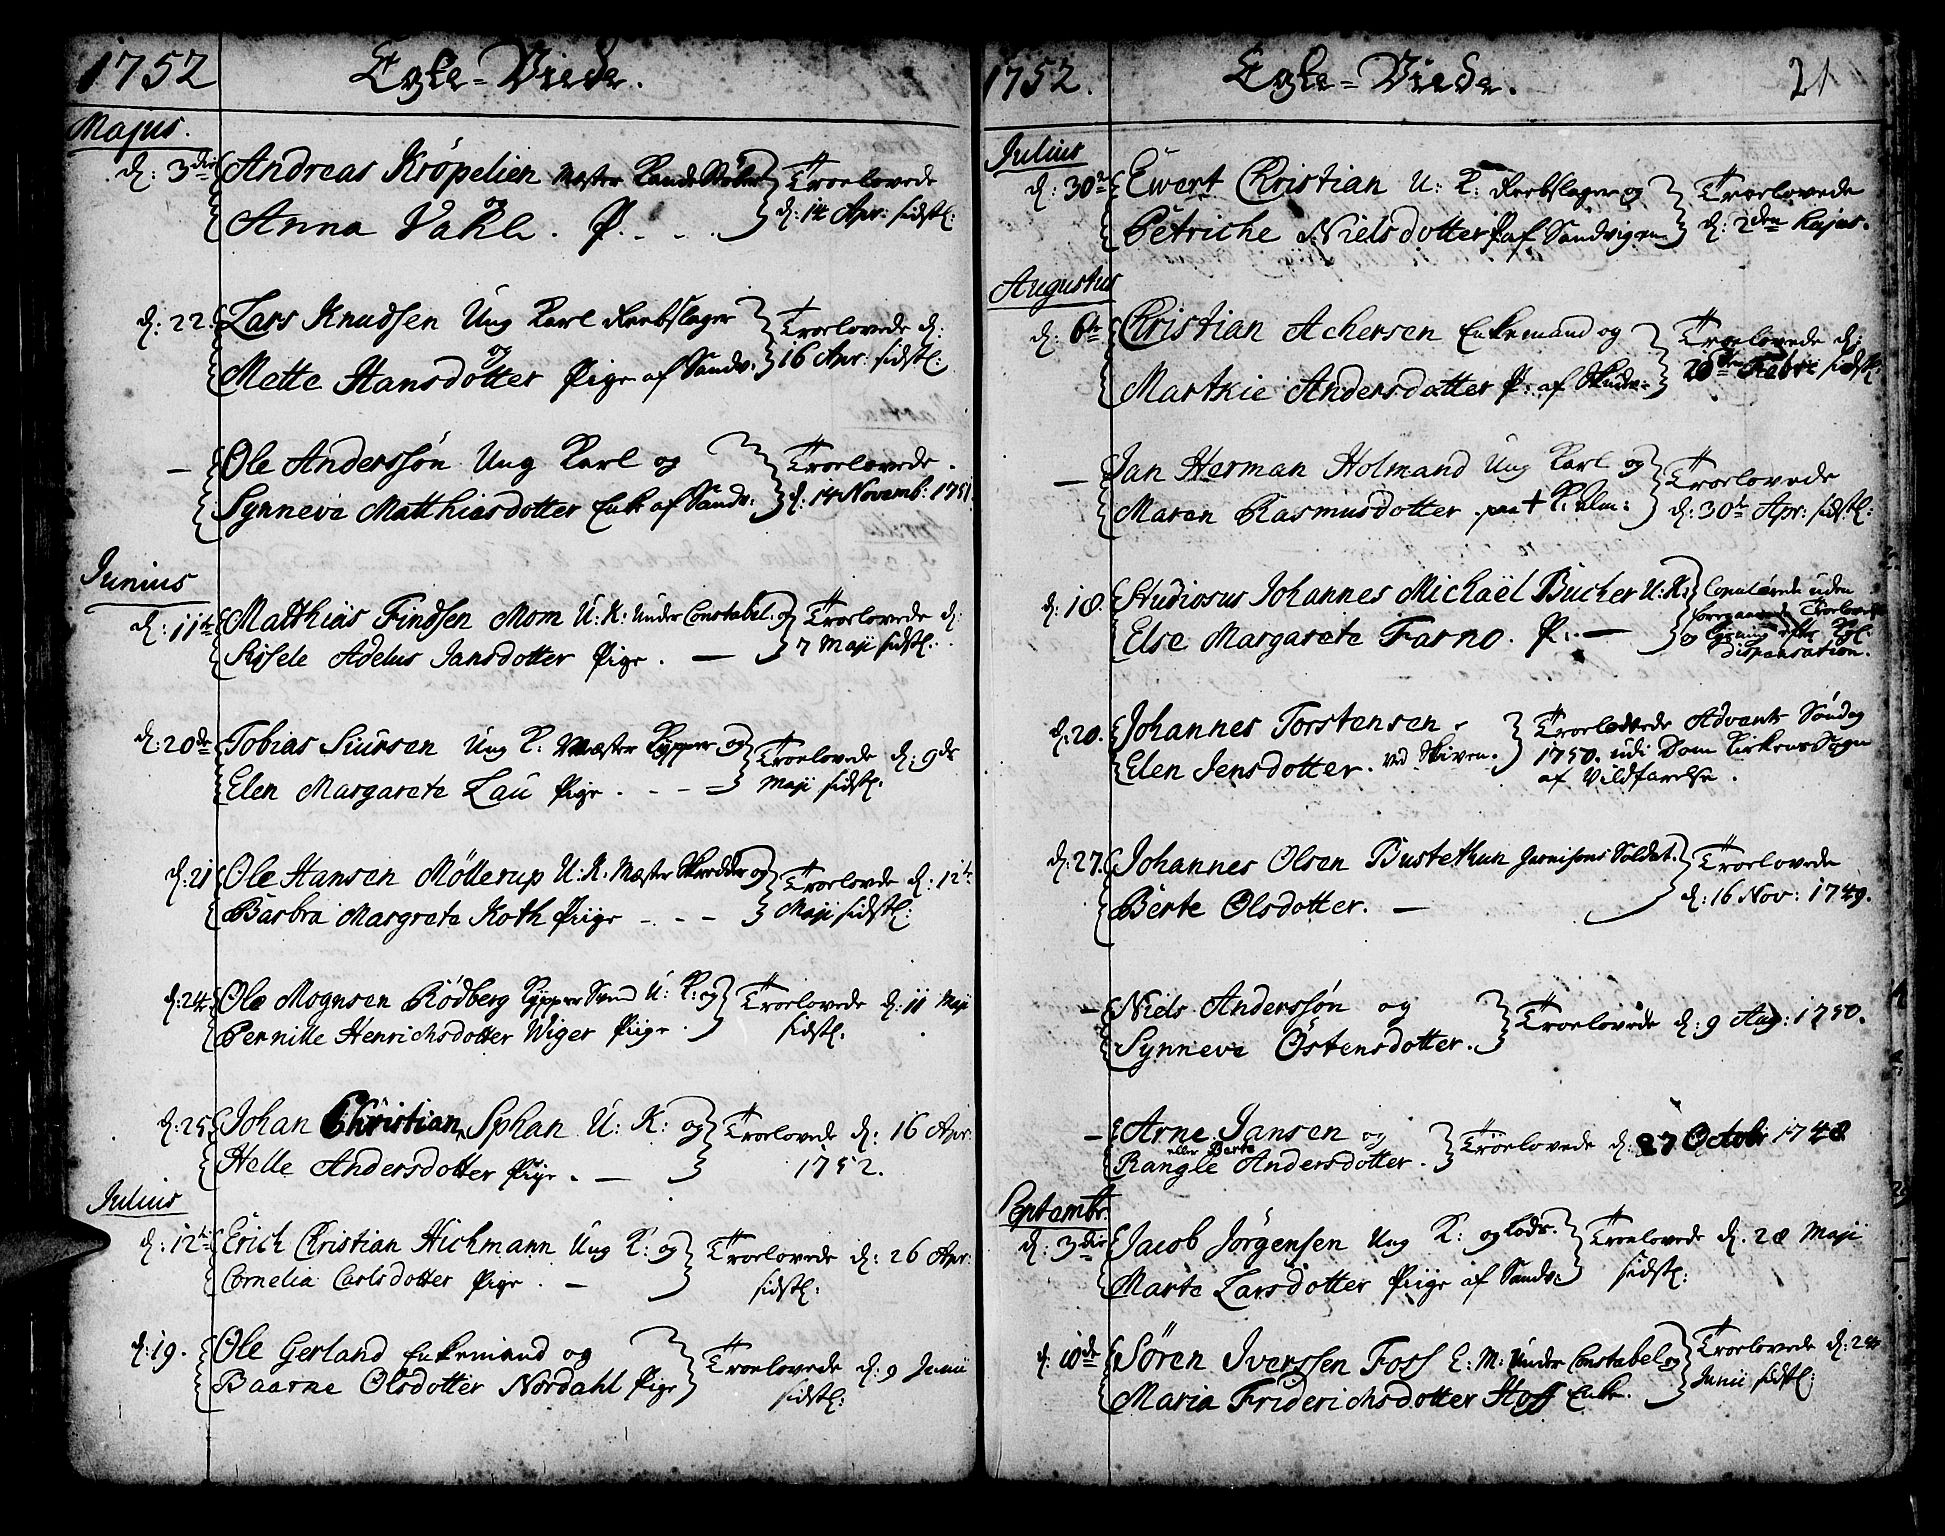 1752
Egte-Viede.
Majus.
d: 3die Andreas Kröpelien Mester Kandestöber
og
Anna Vahl. P.
Troelovede
d: 14 Apr: sidstl:
d: 22. Lars Knudsen Ung Karl Reebslager
og
Mette Hansdotter Pige af Sandv:
Troelovede d:
16 Apr: sidstl:
– Ole Anderssön Ung Karl og
Synneve Matthiasdotter Enke af Sandv:
Troelovede
d: 14 Novemb: 1751.
Junius
d: 11te Matthias Findsen Mom U: K: Under Constabel: og
Sissele Adelus Jansdotter Pige. –
Troelovede d:
7 Maji sidstl:
d: 20de Tobias Siursen Ung K: Mæster Kypper og
Elen Margarete Lau Pige. - - =
Troelovede d: 9de
Maji sidstl:
d: 21 Ole Hansen Möllerup U: K: Mæster Skredder og
Barbra Margrete Koth Piige - - -
Troelovde d: 12te
Maji sidstl:
d: 24 Ole Mognsen Rödberg Kypper Svend U: K: og
Pernille Henrichsdotter Wiger Piige.
Troelovede d: 11 Maji
sidstl:
d: 25. Johan Christian Sphan U: K: og
Helle Andersdotter Pige. –
Troelovede d: 16 Apr:
1752.
Julius
d: 12te Erich Christian Hichmann Ung K: og
Cornelia Carlsdotter Pige. –
Troelovede d: 26 Apr:
sidstl:
d: 19. Ole Gerland Enkemand og
Baarne Olsdotter Nordahl Pige
Troelovede d: 9 Junii
sidstl:
1752.
Egte-Viede.
21
Julius
d: 30te Ewert Christian U: K: Reebslager og
Petriche Nielsdotter P. af Sandvigen
Troelovede
d: 2den Majus.
Augustus
d: 6te Christian Achersen Enkemand og
Martkie Andersdotter P: af Skudev:
Troelovede d:
Febri sidstl:
– Jan Herman Holmand Ung Karl og
Maren Rasmusdotter. paa + K: Alm:
Troelovede
d: 30te Apr: sidstl:
d: 18. Studiosus Johannes Michaël Bucher U: K:
Else Margarete Farno. P: –
Copulerede uden
foregaaende Troelovelse
og lysning efter Kgl:
dispensation.
d: 20. Johannes Torstensen -
Elen Jensdotter. ved Skiven.
Troelovede Advents Söndag
1750. udi Dom Kirkens Sogn
af Vildfarelse.
d: 27. Johannes Olsen Bustethun Garnisons Soldat.
Berte Olsdotter. –
Troelovede
d: 16 Nov: 1749.
– Niels Anderssön og
Synneve Östensdotter.
Troelovede d: 9 Aug: 1750.
– Arne Jansen og
eller Berte
Rangle Andersdotter.
Troelovede d: 27 Octobr 1748
Septembr.
d: 3die Jacob Jörgensen Ung K: og Lods.
Marte Larsdotter Piige af Sandv:
Troelovede d. 28 Maji
sidstl:
d: 10de Sören Iverssen Foss E: M: Under Constabel og
Maria Friderichsdotter Hoff Enke.
Troelovede d: 24
Junii sidstl: